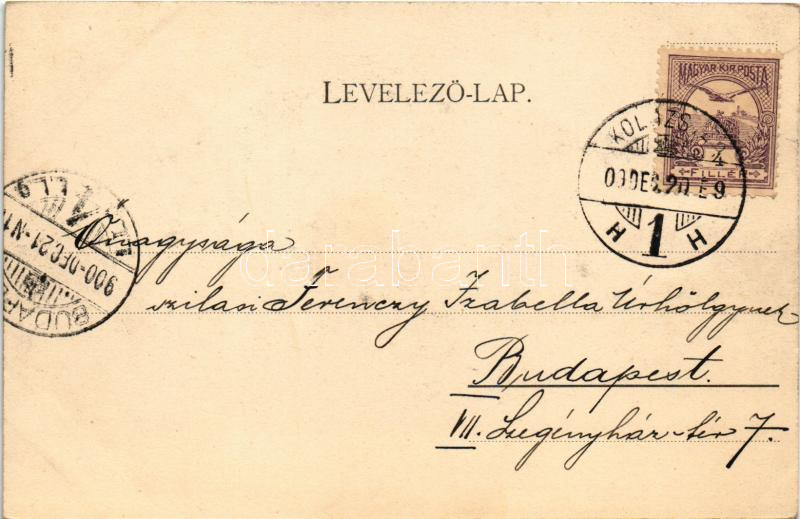 LEVELEZŐ-LAP.
MAGYAR KIR. POSTA
FILLÉR
KOLOZS
00 DEC. 20 É 9
H 1 H
BUDAP
900-DEC. 21-N1
darabanth
Őnagysága
szilasi Ferenczy Izabella Úrhölgynek
Budapest.
VII. Szegényház-tér 7.